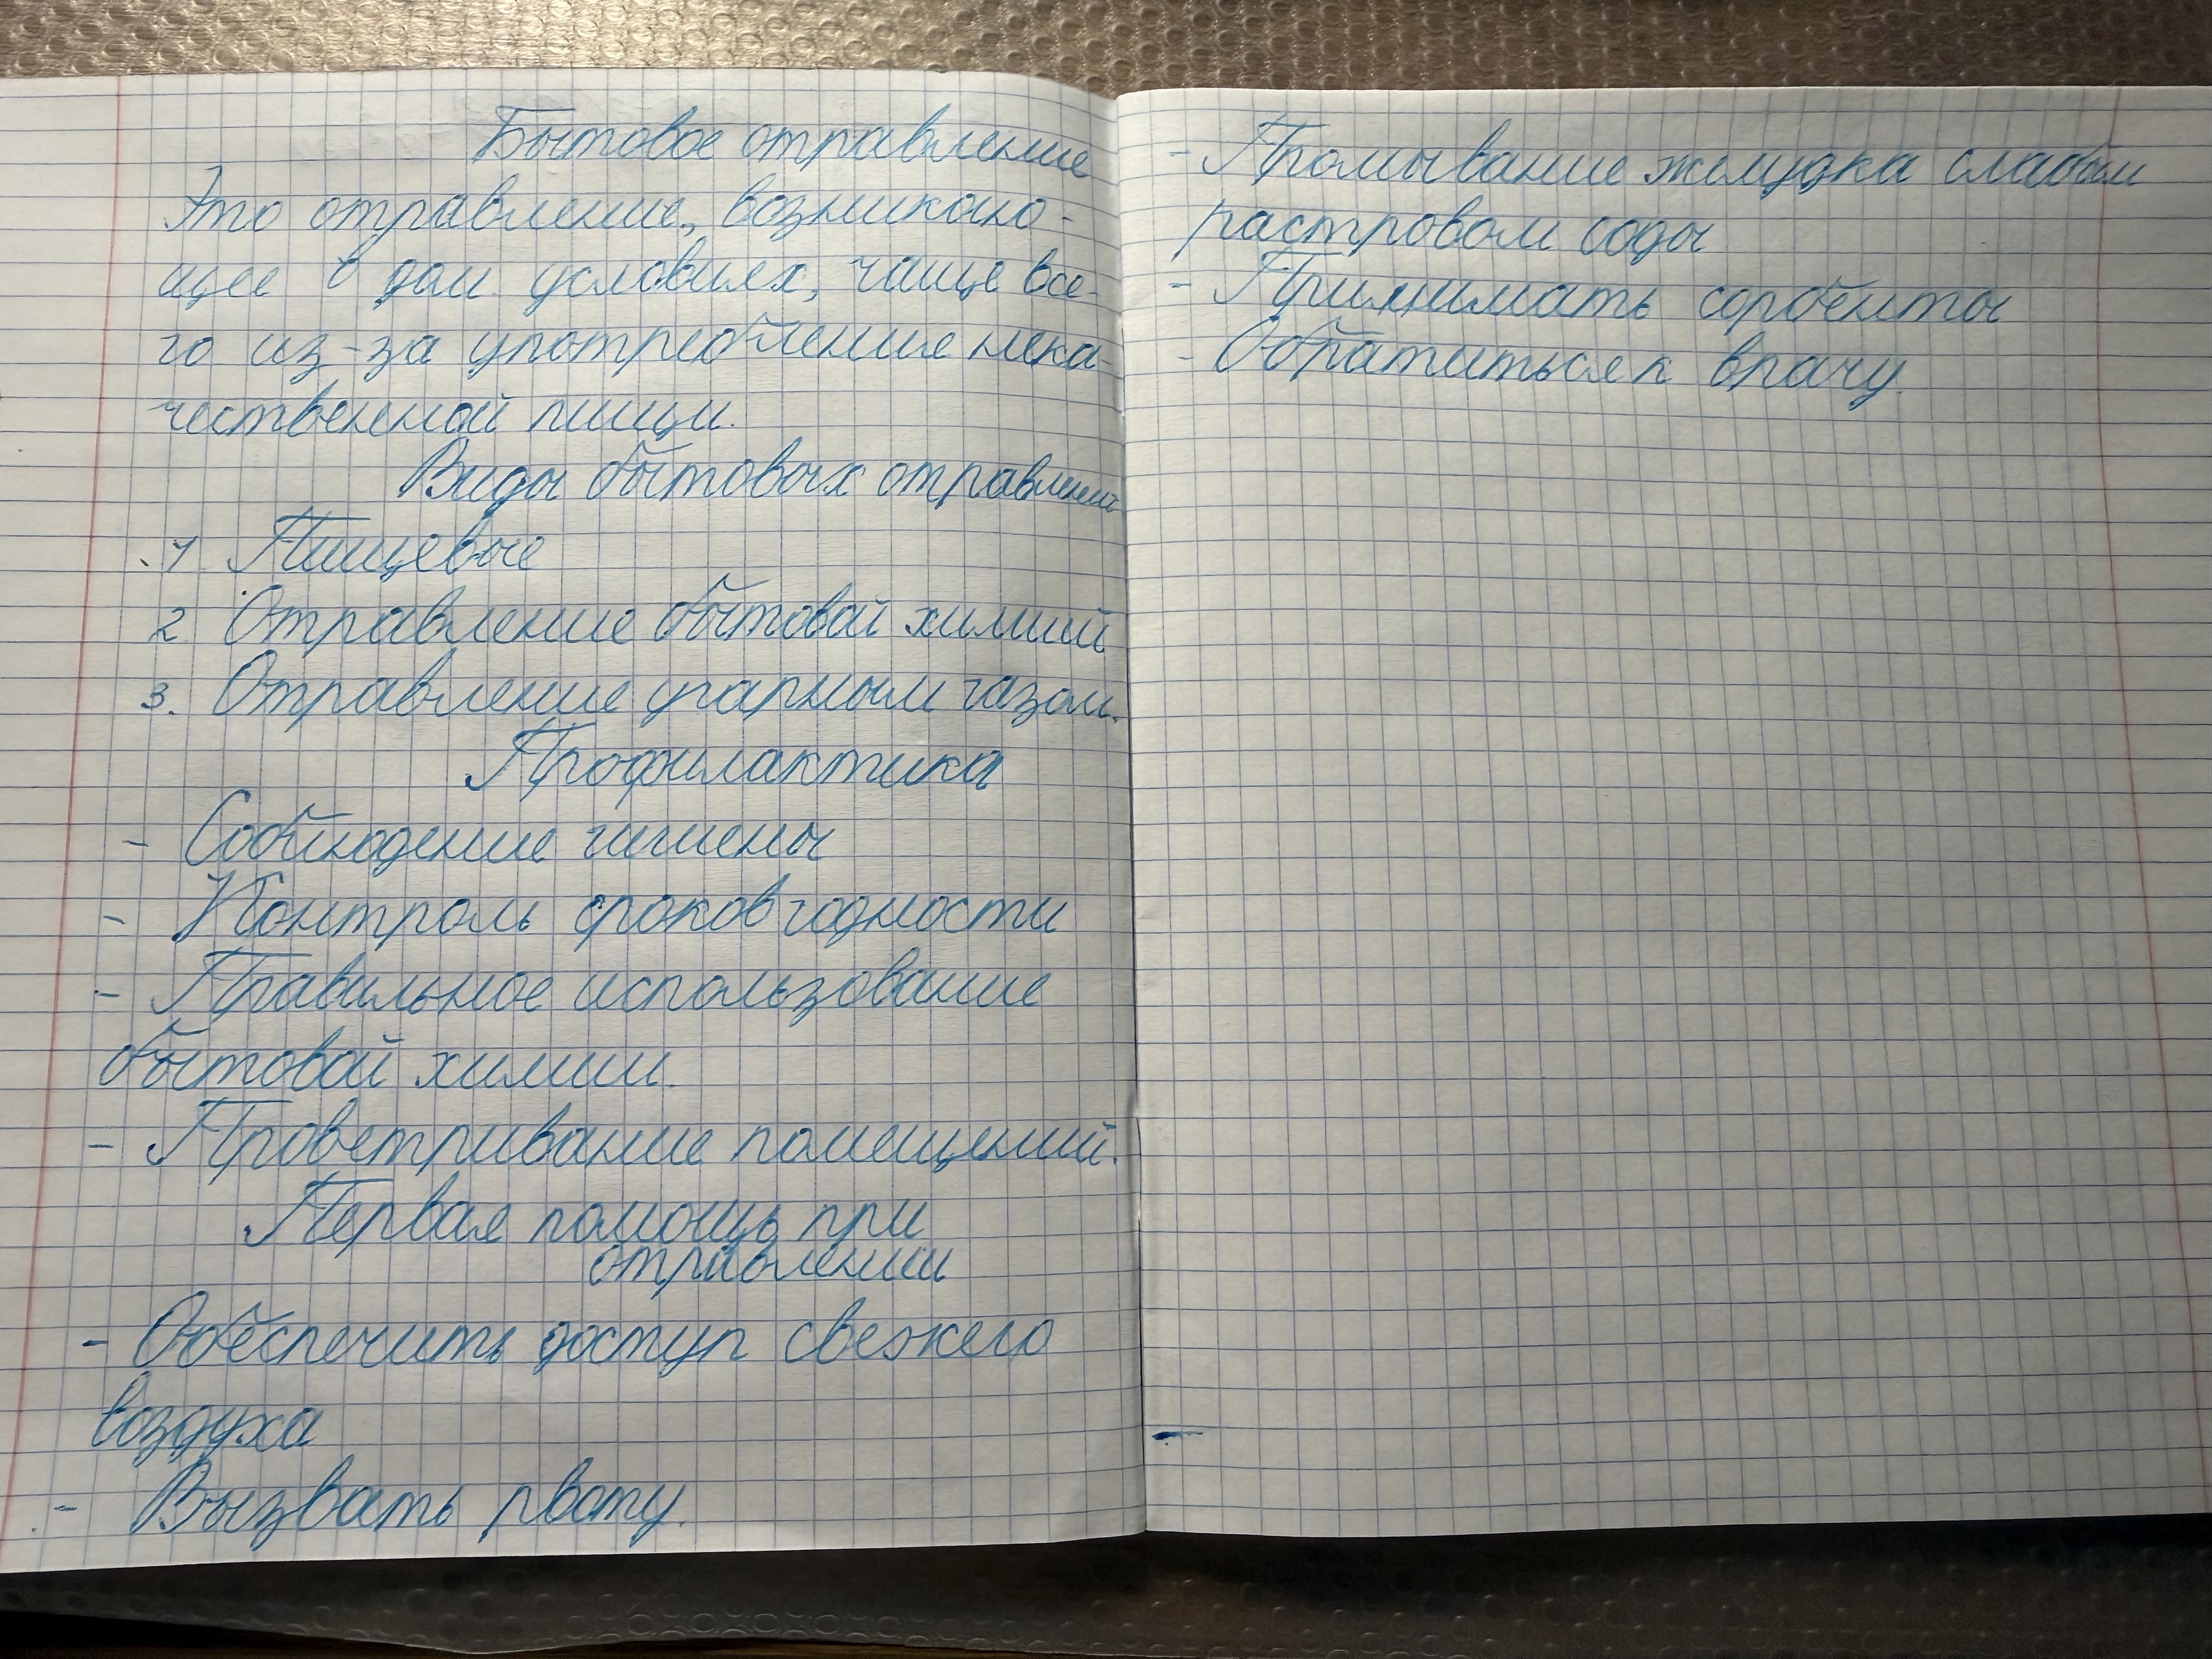 Бытовое отравление
Это отравление, возникаю-
щее в дом. условиях, чаще все-
го из-за употребление нека-
чественной пищи.
Виды бытовых отравлений
1. Пищевые
2. Отравление бытовой химией
3. Отравление угарным газом.
Профилактика
- Соблюдение гигиены
- Контроль сроков годности
- Правильное использование
бытовой химии.
- Проветривание помещений.
Первая помощь при
отравлении
- Обеспечить доступ свежего
воздуха
- Вызвать рвоту.
- Промывание желудка слабым
растровом соды
- Принимать сорбенты
- Обратиться к врачу.